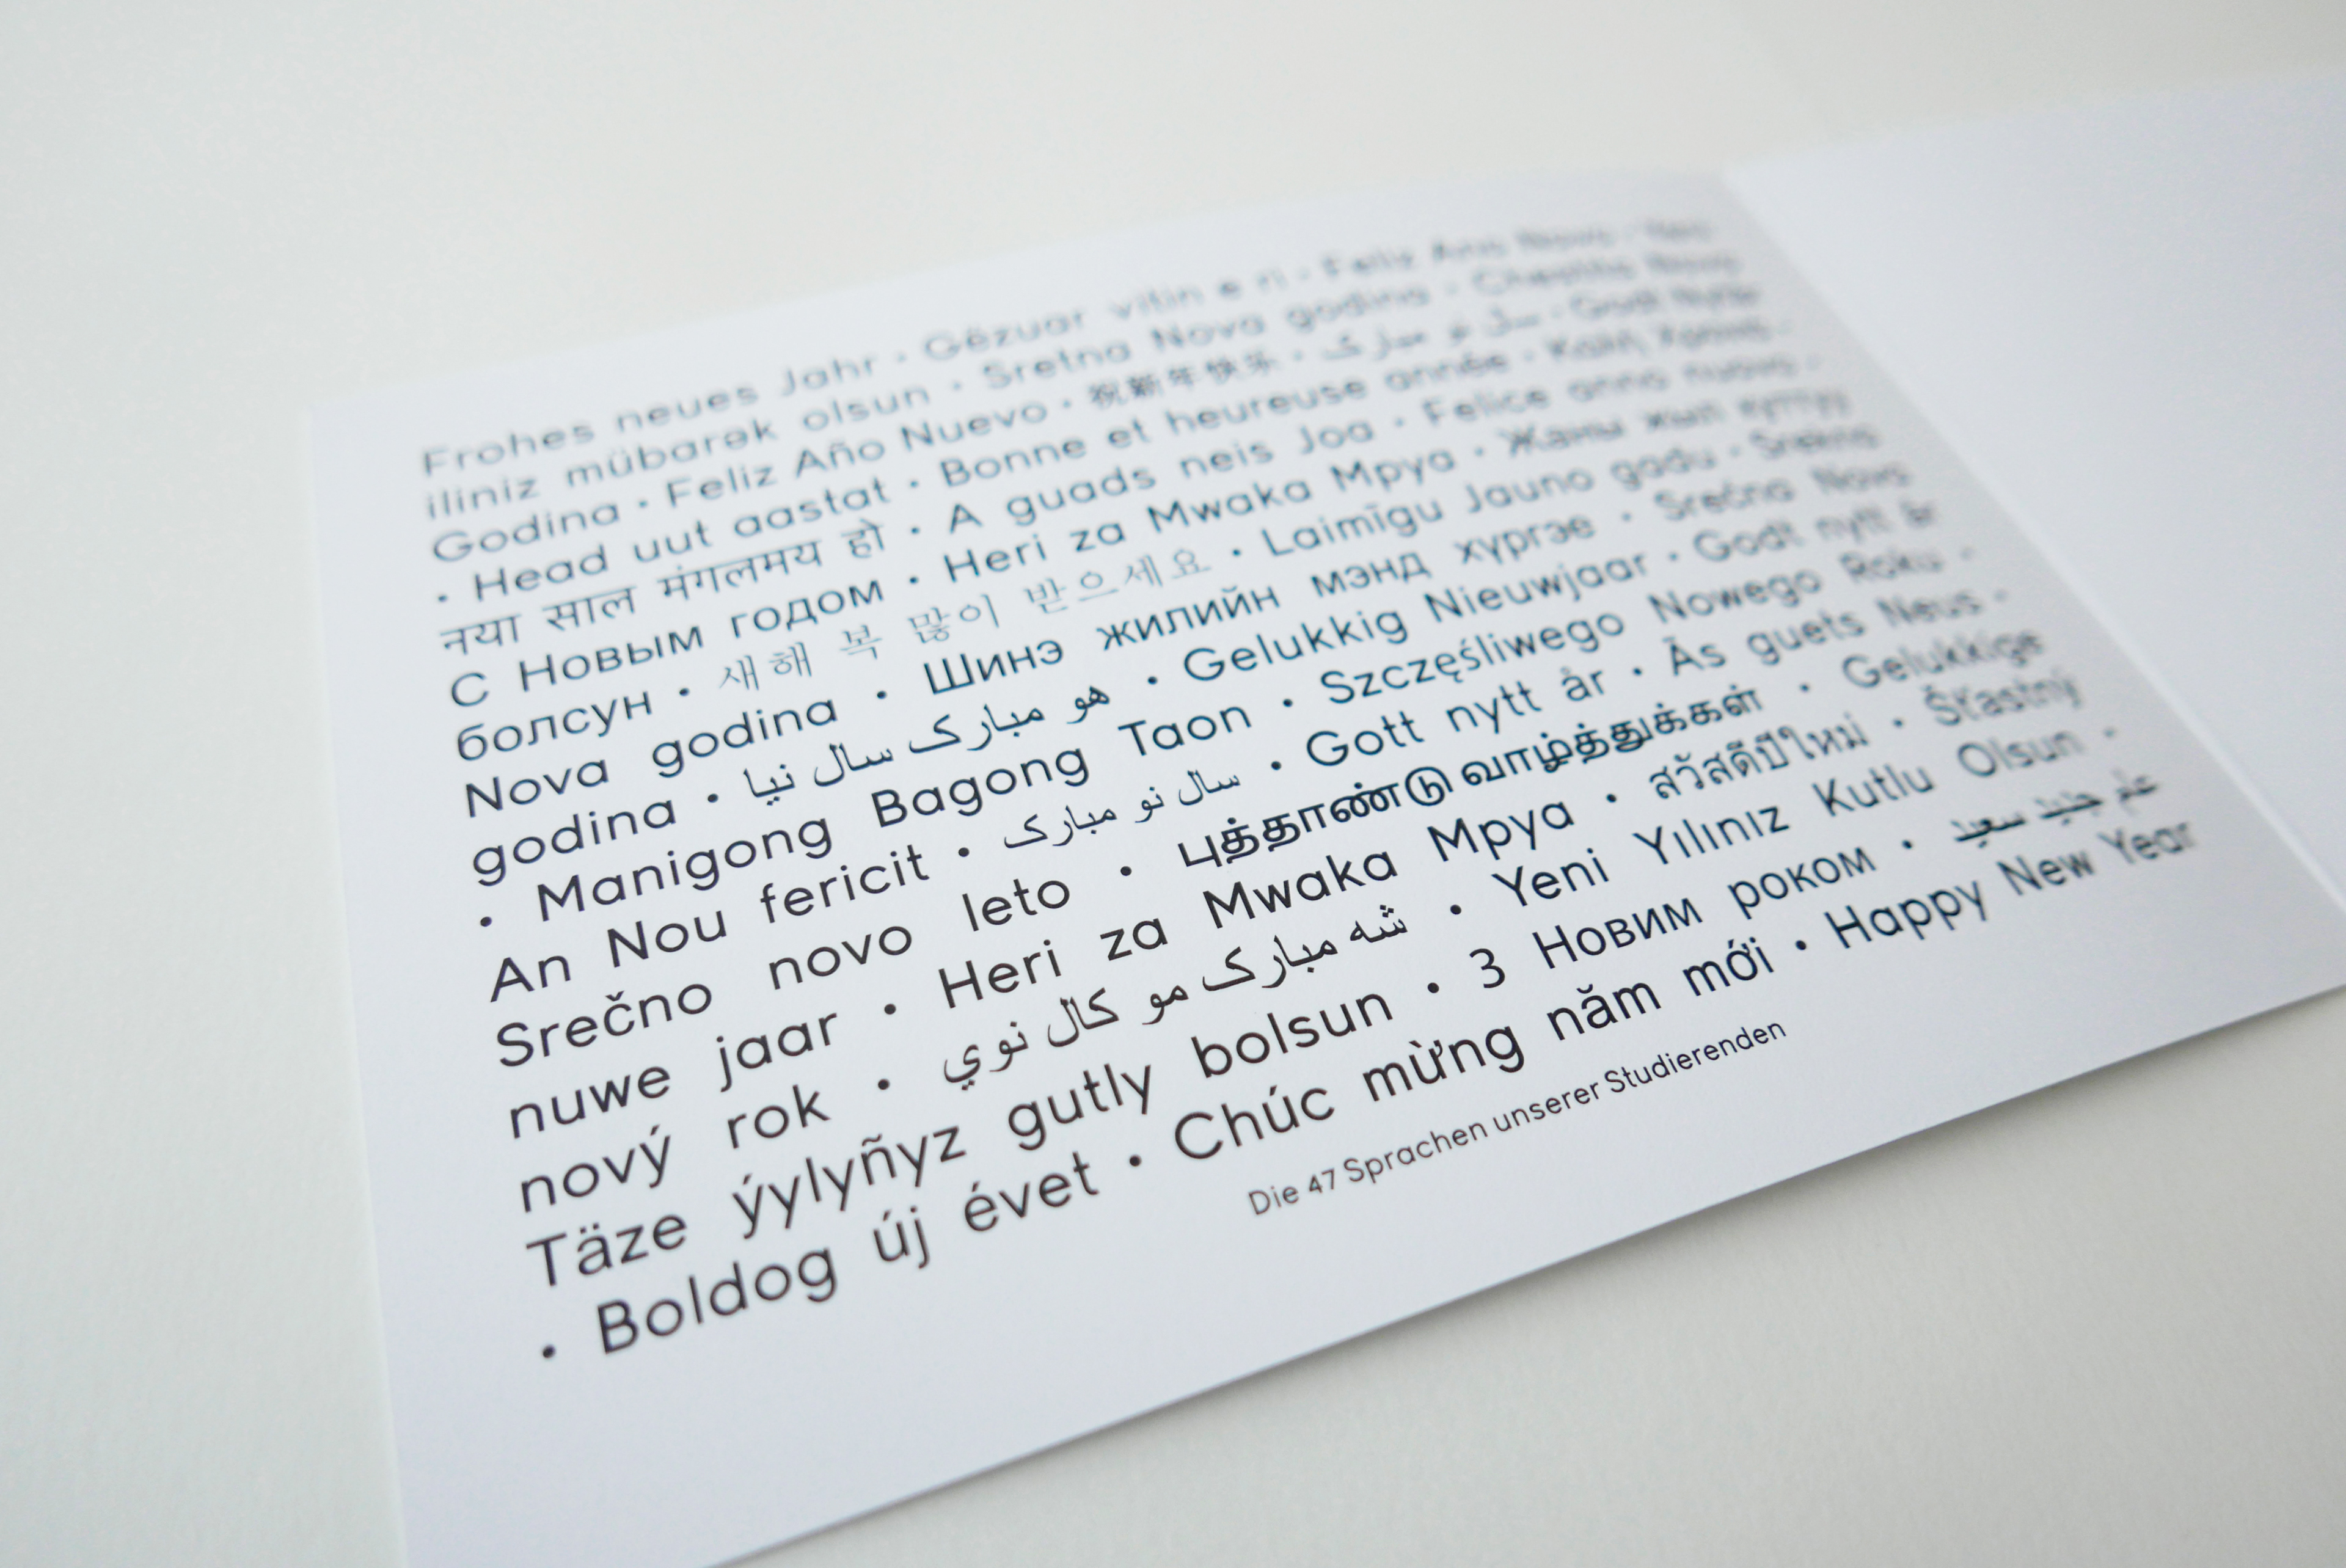 Frohes neues Jahr · Gëzuar vitin e ri · Feliz Ano Novo · Yeni
iliniz mübarək olsun · Sretna Nova godina · Chestita Nova
Godina · Feliz Año Nuevo · 祝新年快乐 · سال نو مبارک · Godt Nytår
· Head uut aastat · Bonne et heureuse année · Καλή Χρονιά ·
नया साल मंगलमय हो · A guads neis Joa · Felice anno nuovo ·
С Новым годом · Heri za Mwaka Mpya · Жаңы жыл куттуу
болсун · 새해 복 많이 받으세요 · Laimīgu Jauno gadu · Srekna
Nova godina · Шинэ жилийн мэнд хүргэе · Srećna Nova
godina · نیا سال مبارک ہو · Gelukkig Nieuwjaar · Godt nytt år
· Manigong Bagong Taon · Szczęśliwego Nowego Roku ·
An Nou fericit · سال نو مبارک · Gott nytt år · Äs guets Neus ·
Srečno novo leto · புத்தாண்டு வாழ்த்துக்கள் · Gelukkige
nuwe jaar · Heri za Mwaka Mpya · สวัสดีปีใหม่ · Šťastný
nový rok · نوي کال مو مبارک شه · Yeni Yılınız Kutlu Olsun ·
Täze ýylyñyz gutly bolsun · З Новим роком · عام جديد سعيد
· Boldog új évet · Chúc mừng năm mới · Happy New Year
Die 47 Sprachen unserer Studierenden